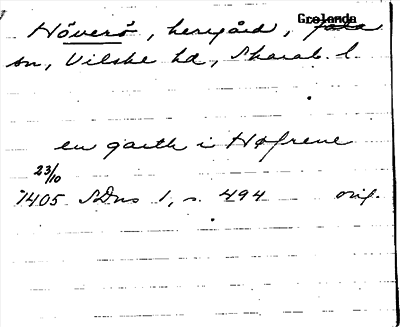 Grolanda
Höverö, herrgård,
sn, Vilske hd, Skarab. l.
en garth i Høfrene
23/10
1405 SDns 1, s. 494 orig.